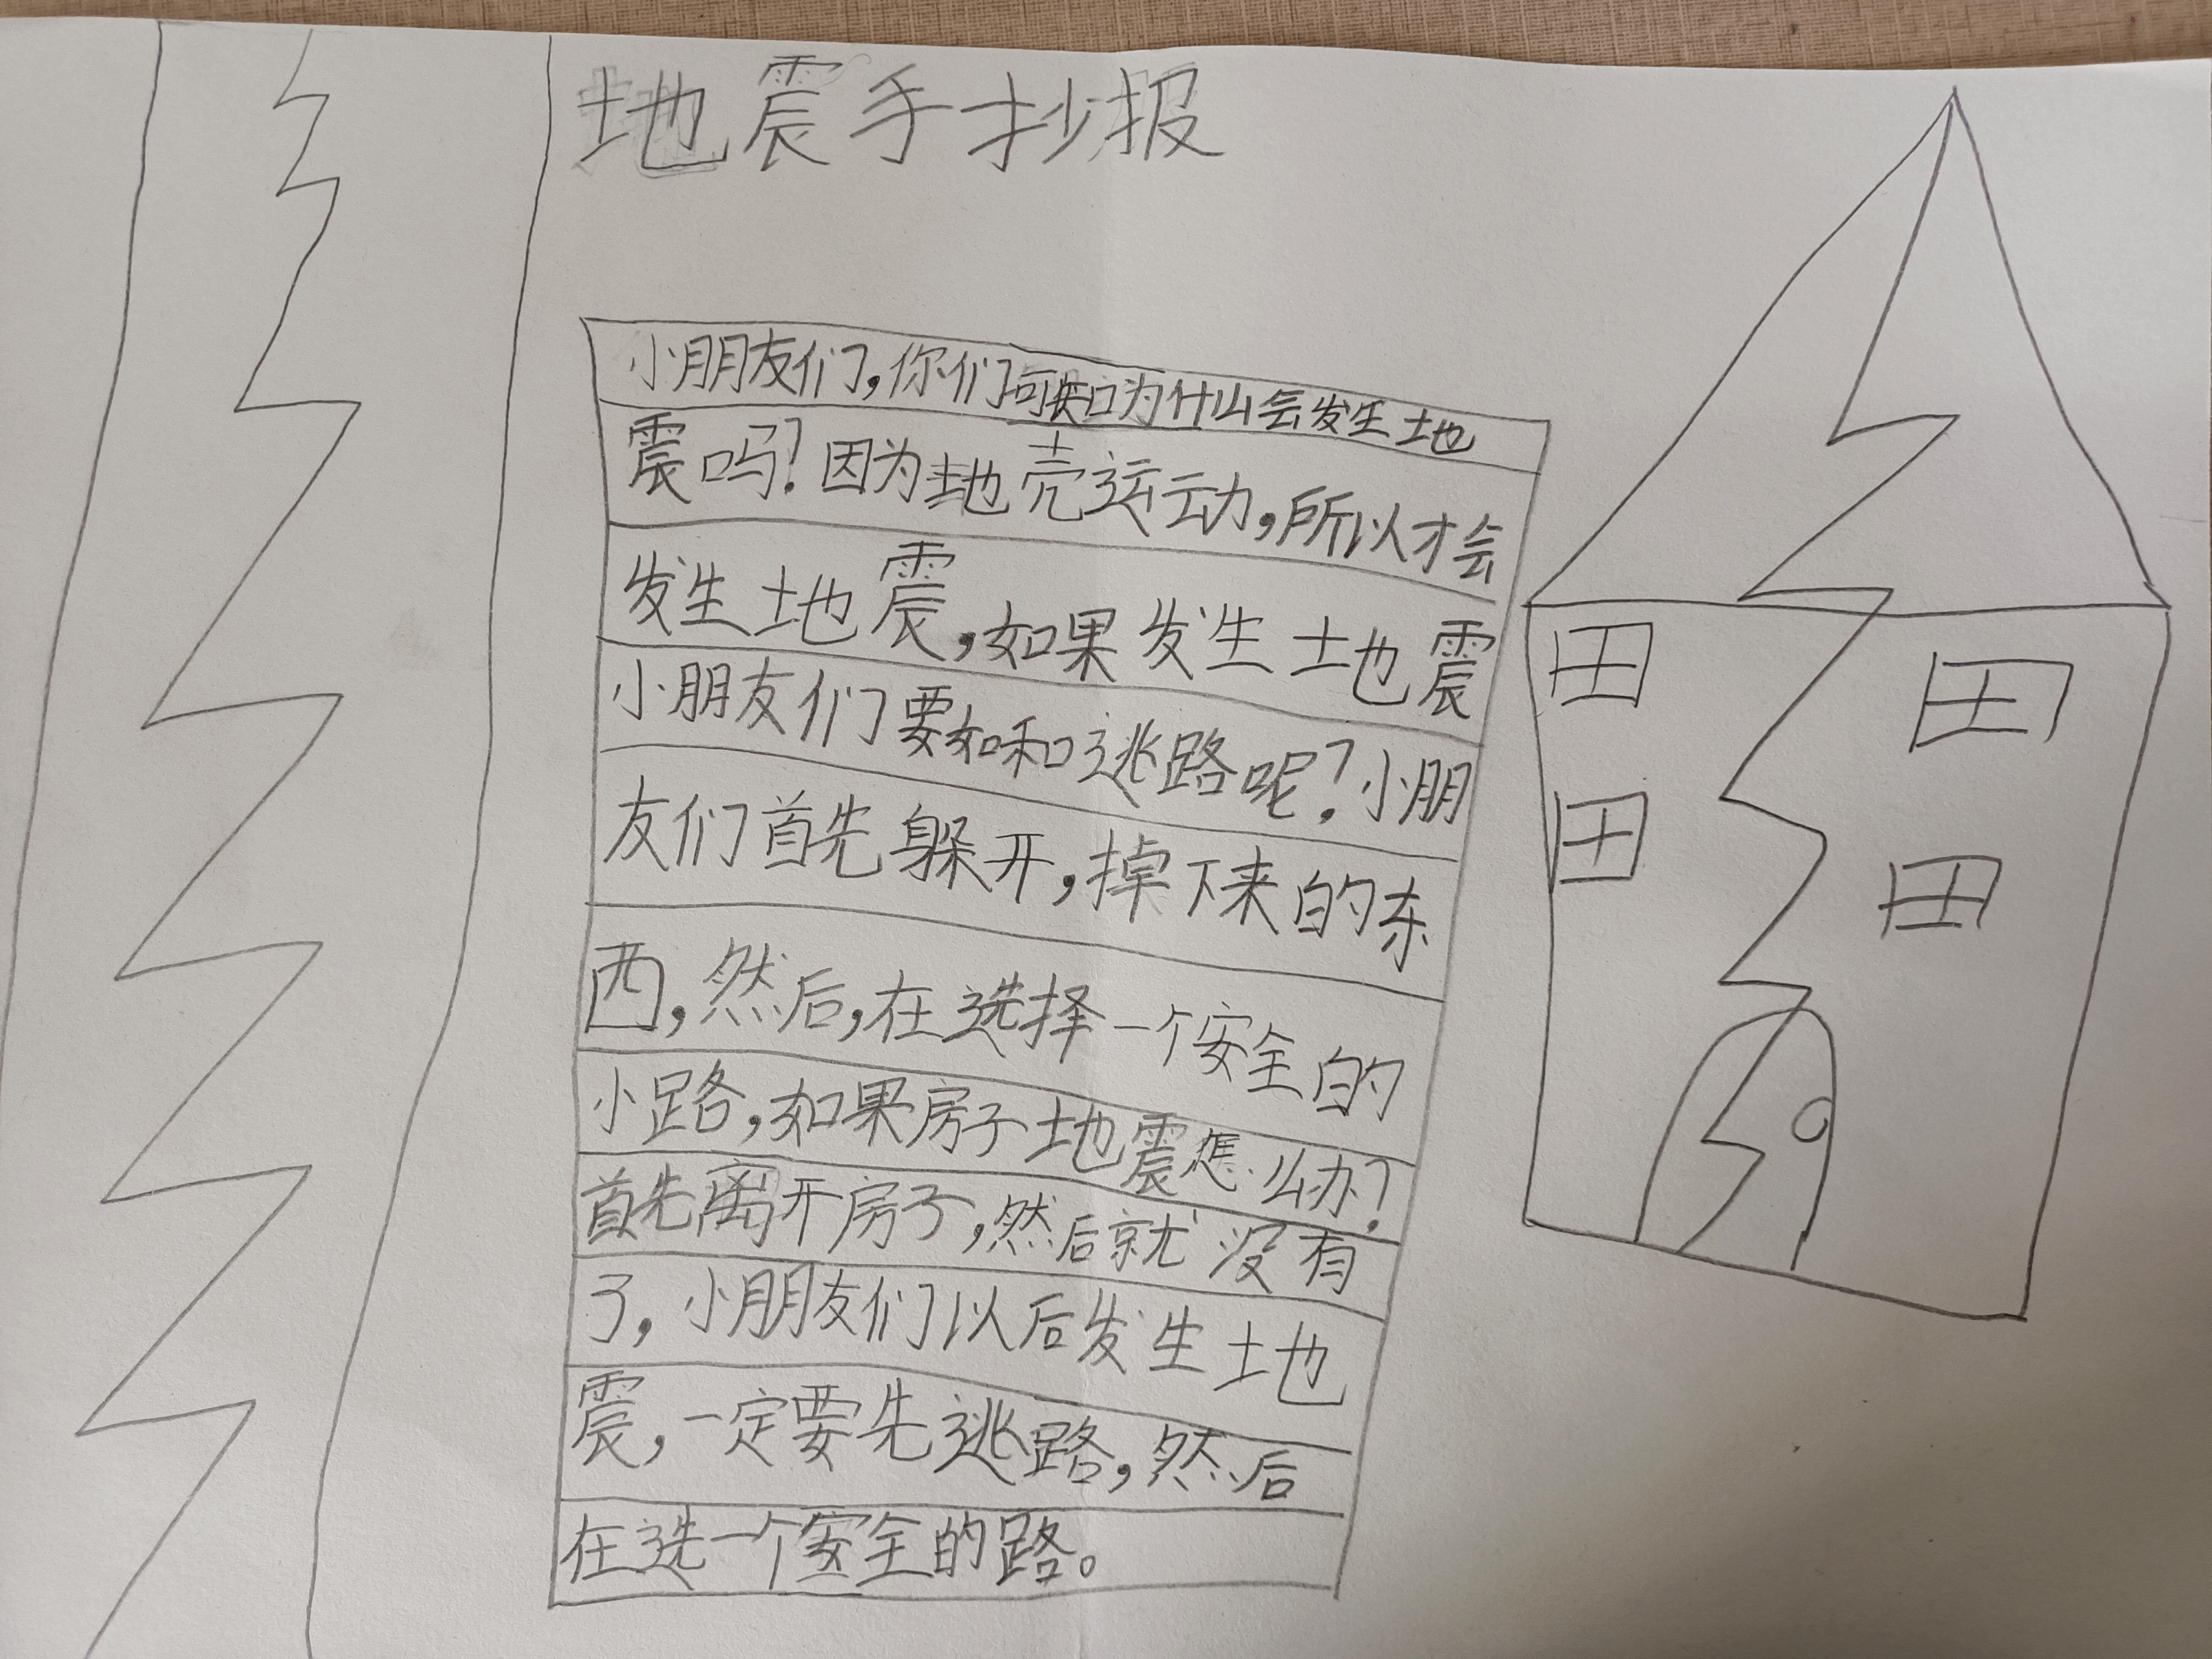 地震手抄报
小朋友们,你们可知为什么会发生地
震吗?因为地壳运动,所以才会
发生地震,如果发生地震
小朋友们要如和逃路呢?小朋
友们首先躲开,掉下来的东
西,然后,在选择一个安全的
小路,如果房子地震怎么办?
首先离开房子,然后就没有
了,小朋友们以后发生地
震,一定要先逃路,然后
在选一个安全的路。